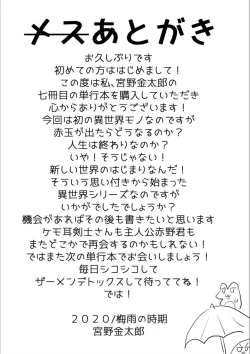 メスあとがき
お久しぶりです
初めての方ははじめまして！
この度は私、宮野金太郎の
七冊目の単行本を購入していただき
心からありがとうございます！
今回は初の異世界モノなのですが
赤玉が出たらどうなるのか？
人生は終わりなのか？
いや！そうじゃない！
新しい世界のはじまりなんだ！
そういう思い付きから始まった
異世界シリーズなのですが
いかがでしたでしょうか？
機会があればその後も書きたいと思います
ケモ耳剣士さんも主人公赤野君も
またどこかで再会するのかもしれない！
ではまた次の単行本でお会いしましょう！
毎日シコシコして
ザーメンデトックスして待っててね！
では！
2020/梅雨の時期
宮野金太郎